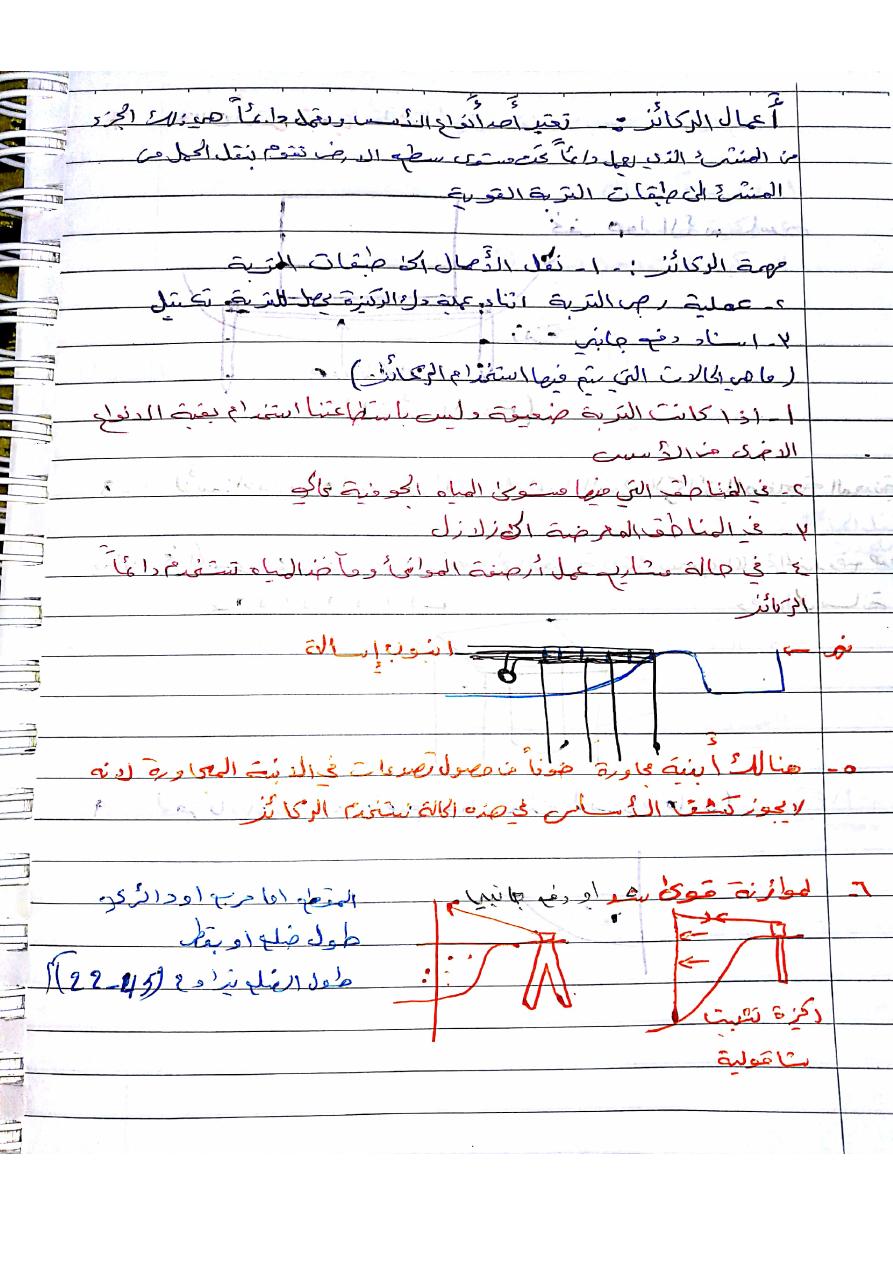 أعمال الركائز :- تعتبر أحد أنواع الأسس وتعمل دائماً هي ذلك الجزء
من المنشئ الذي يعمل دائماً تحت مستوى سطح الارض تقوم بنقل الحمل من
المنشئ الى طبقات التربة القوية
مهمة الركائز :- ١- نقل الأحمال الى طبقات التربة
٢- عملية رص التربة اثناء عملية دك الركيزة يحصل للتربة تكتيل
٣- اسناد دفع جانبي
(ما هي الحالات التي يتم فيها استخدام الركائز)
١- اذا كانت التربة ضعيفة وليس باستطاعتنا استخدام بقية الانواع
الاخرى من الأسس
٢- في المناطق التي فيها مستوى المياه الجوفية عالي
٣- في المناطق المعرضة الى زلازل
٤- في حالة مشاريع عمل أرصفة الموانئ ومآخذ المياه تستخدم دائماً
الركائز
نهر
انبوب إسالة
٥- هنالك أبنية مجاورة خوفاً من حصول تصدعات في الابنية المجاورة لانه
لا يجوز كشف الأساس في هذه الحالة نستخدم الركائز
٦- لموازنة قوى شد او دفع جانبي
المقطع اما مربع او دائري
طول ضلع أو بقطر
طول الضلع يتراوح (22-45)
ركيزة تثبت
شاقولية